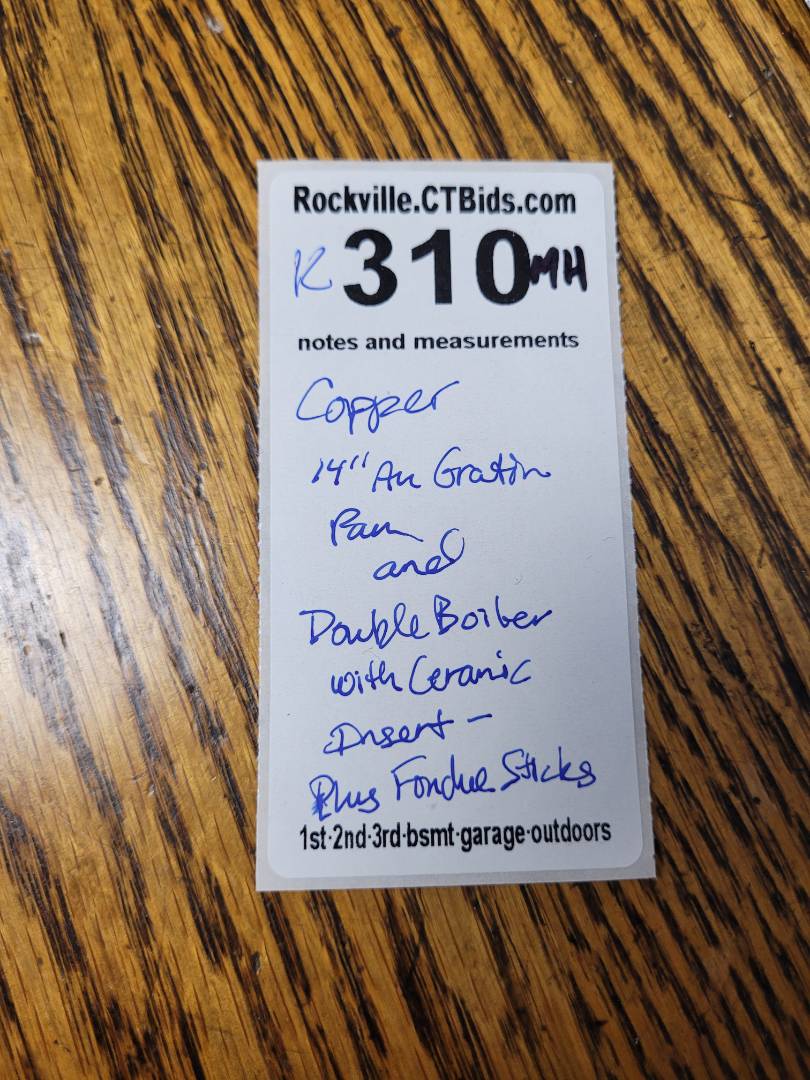 Rockville.CTBids.com
K 310 MH
notes and measurements
Copper
14" Au Gratin
Pan
and
Double Boiler
with Ceramic
Insert -
Plus Fondue Sticks
1st·2nd·3rd·bsmt·garage·outdoors